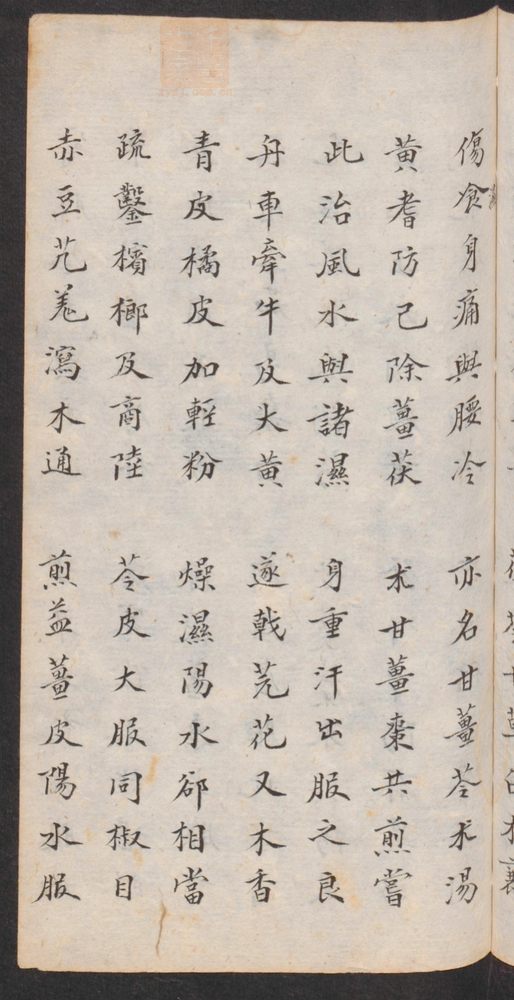 傷飡身痛與腰冷 亦名甘薑苓朮湯
黃耆防己除薑茯 朮甘薑棗共煎嘗
此治風水與諸濕 身重汗出服之良
舟車牽牛及大黃 遂戟芫花又木香
青皮橘皮加輕粉 燥濕陽水郤相當
疏鑿檳榔及商陸 苓皮大服同椒目
赤豆艽羗瀉木通 煎益薑皮陽水服